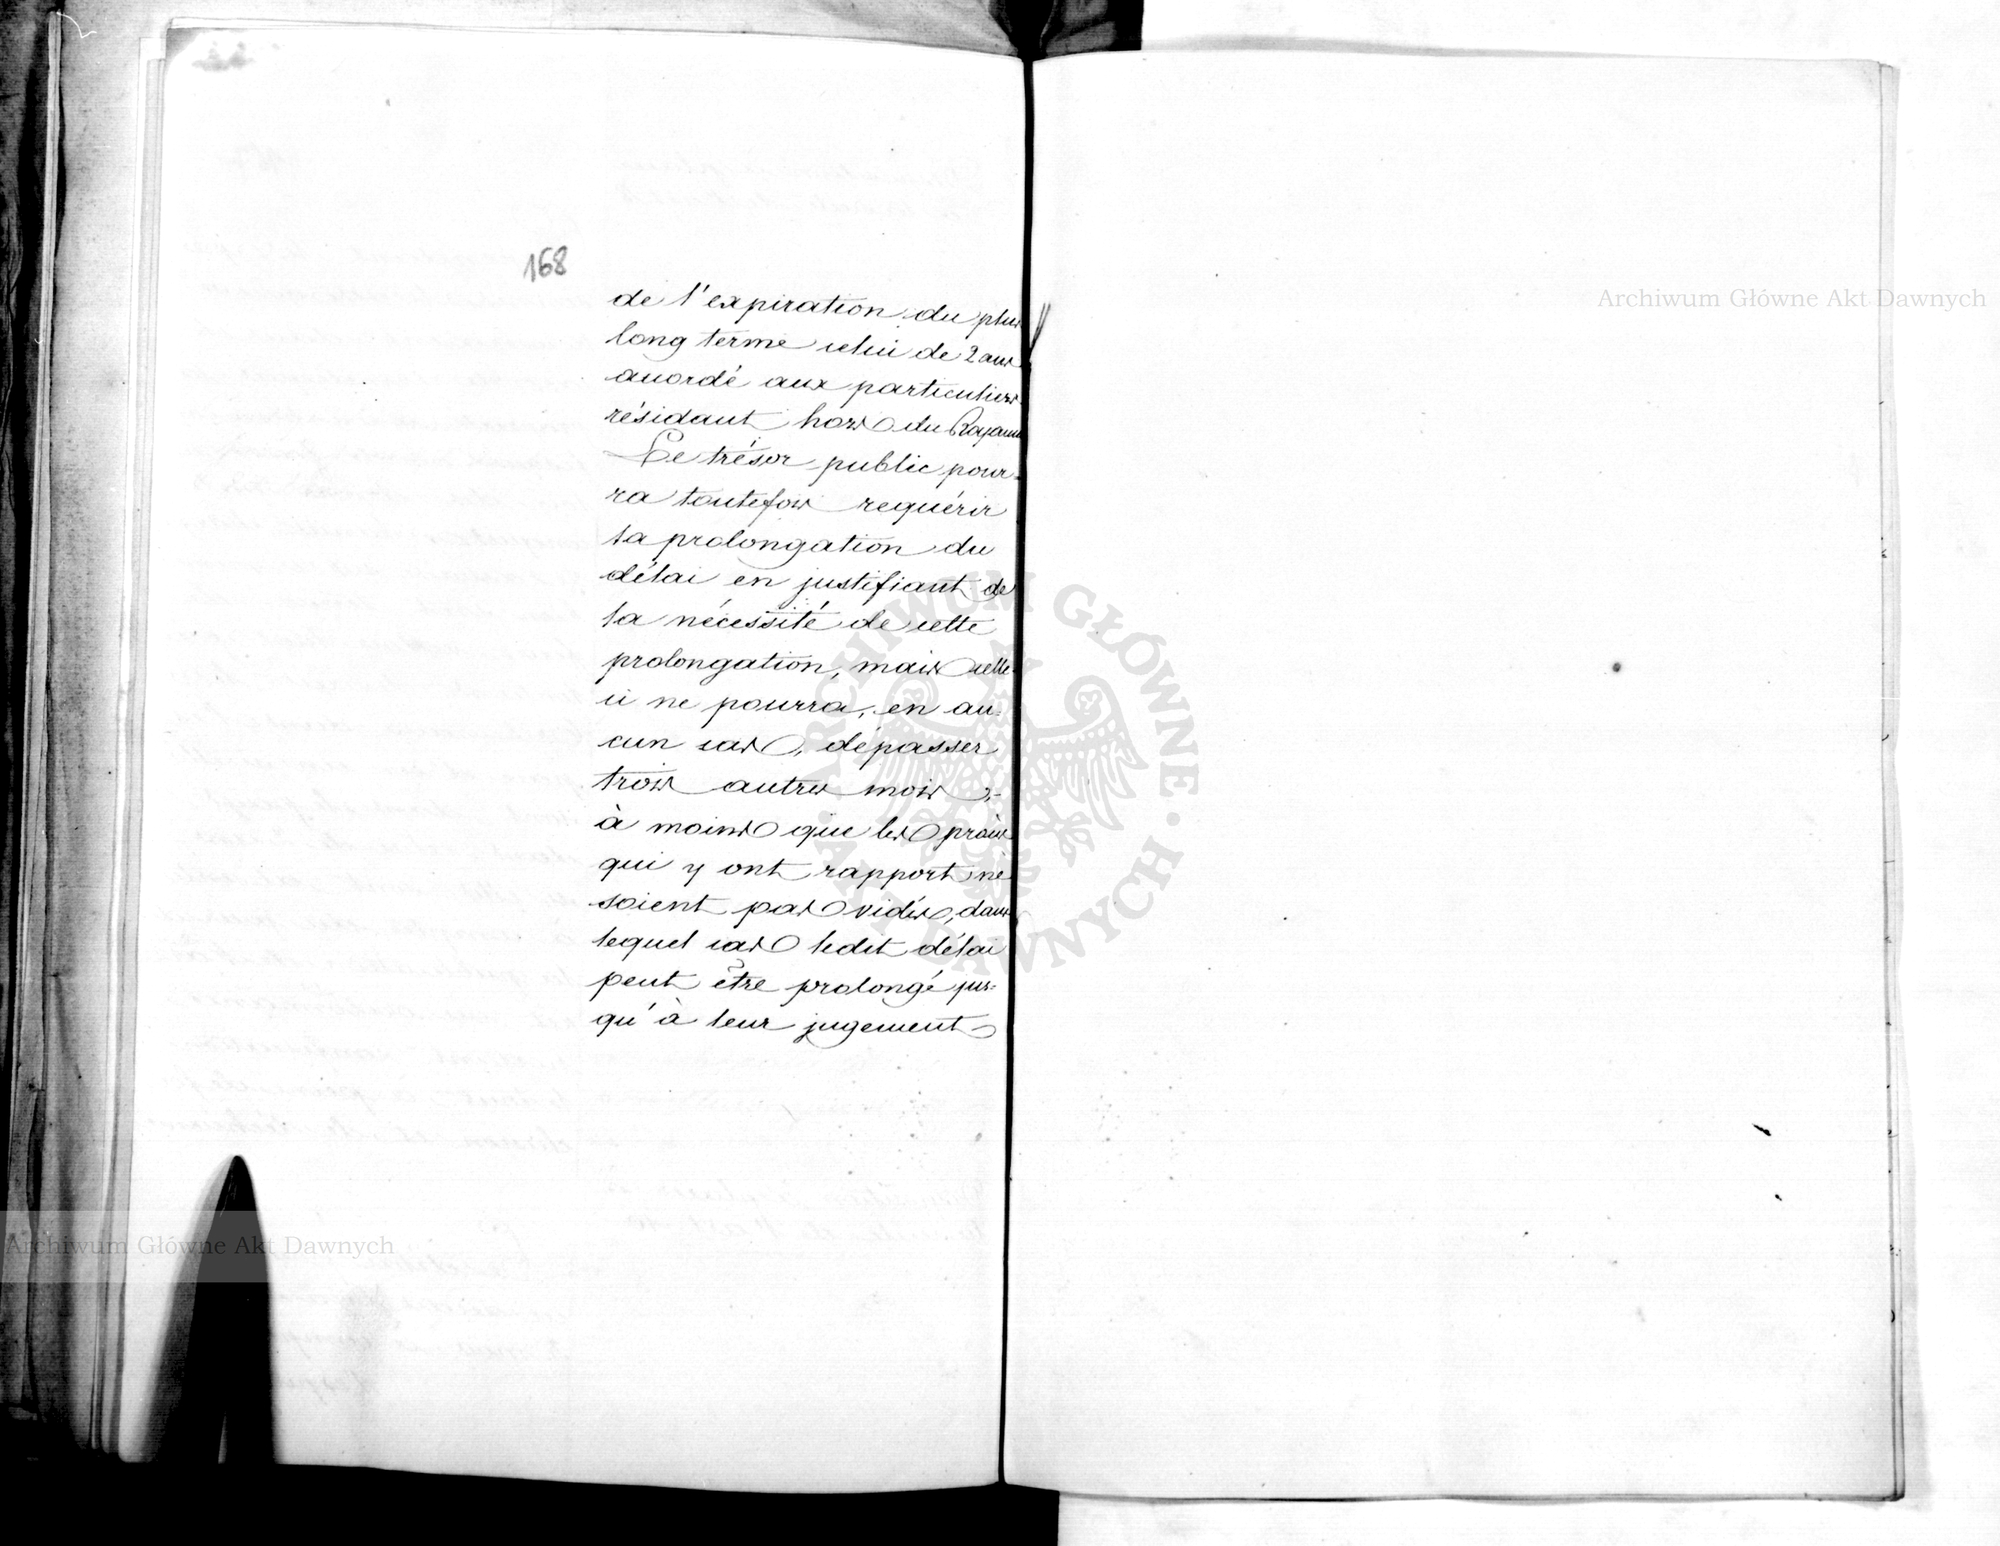 168
de l'expiration du plus
long terme celui de 2 ans
accordé aux particuliers
résidant hors du Royaume
Le trésor public pour-
ra toutefois requérir
la prolongation du
délai en justifiant de
la nécessité de cette
prolongation, mais celle-
ci ne pourra, en au-
cun cas, dépasser
trois autres mois,-
à moins que les procès
qui y ont rapport ne
soient pas vidés, dans
lequel cas ledit délai
peut être prolongé jus-
qu'à leur jugement
Archiwum Główne Akt Dawnych
ARCHIWUM GŁÓWNE AKT DAWNYCH
Archiwum Główne Akt Dawnych